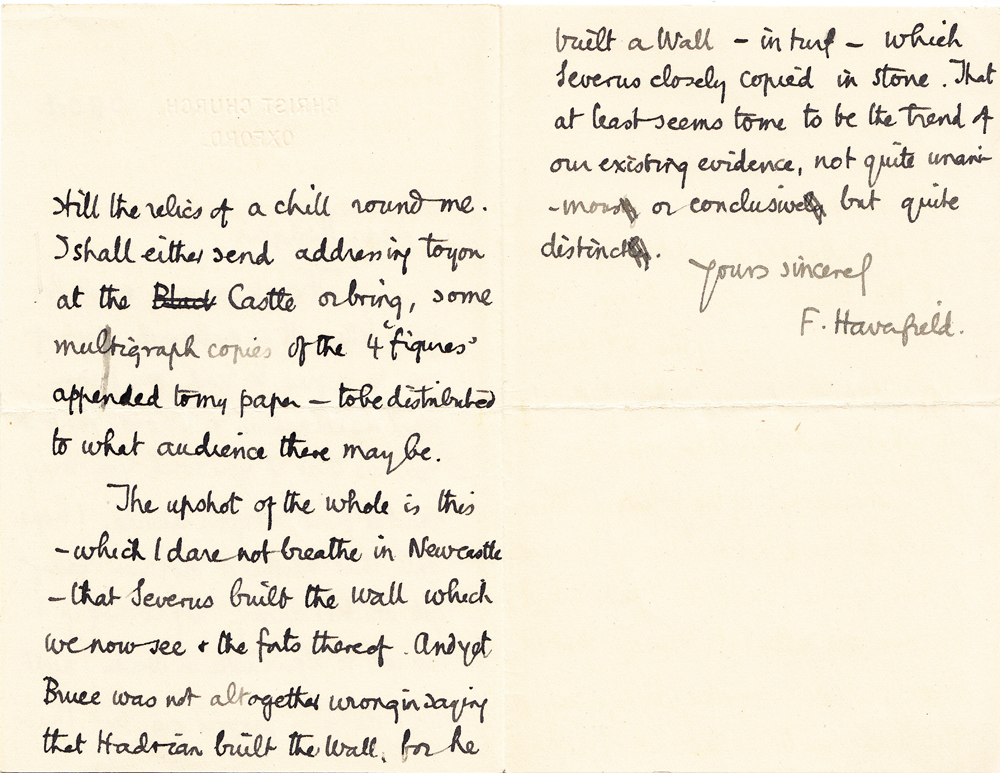 still the relics of a chill round me.
I shall either send addressing to you
at the Black Castle or bring, some
multigraph copies of the 4 "figures"
appended to my paper – to be distributed
to what audience there may be.
The upshot of the whole is this
– which I dare not breathe in Newcastle
– that Severus built the Wall which
we now see & the forts thereof. And yet
Bruce was not altogether wrong in saying
that Hadrian built the Wall, for he
built a Wall – in turf – which
Severus closely copied in stone. That
at least seems to me to be the trend of
our existing evidence, not quite unani-
-mous or conclusive but quite
distinct.
Yours sincerel
F. Haverfield.
CHRIST CHURCH,
OXFORD.